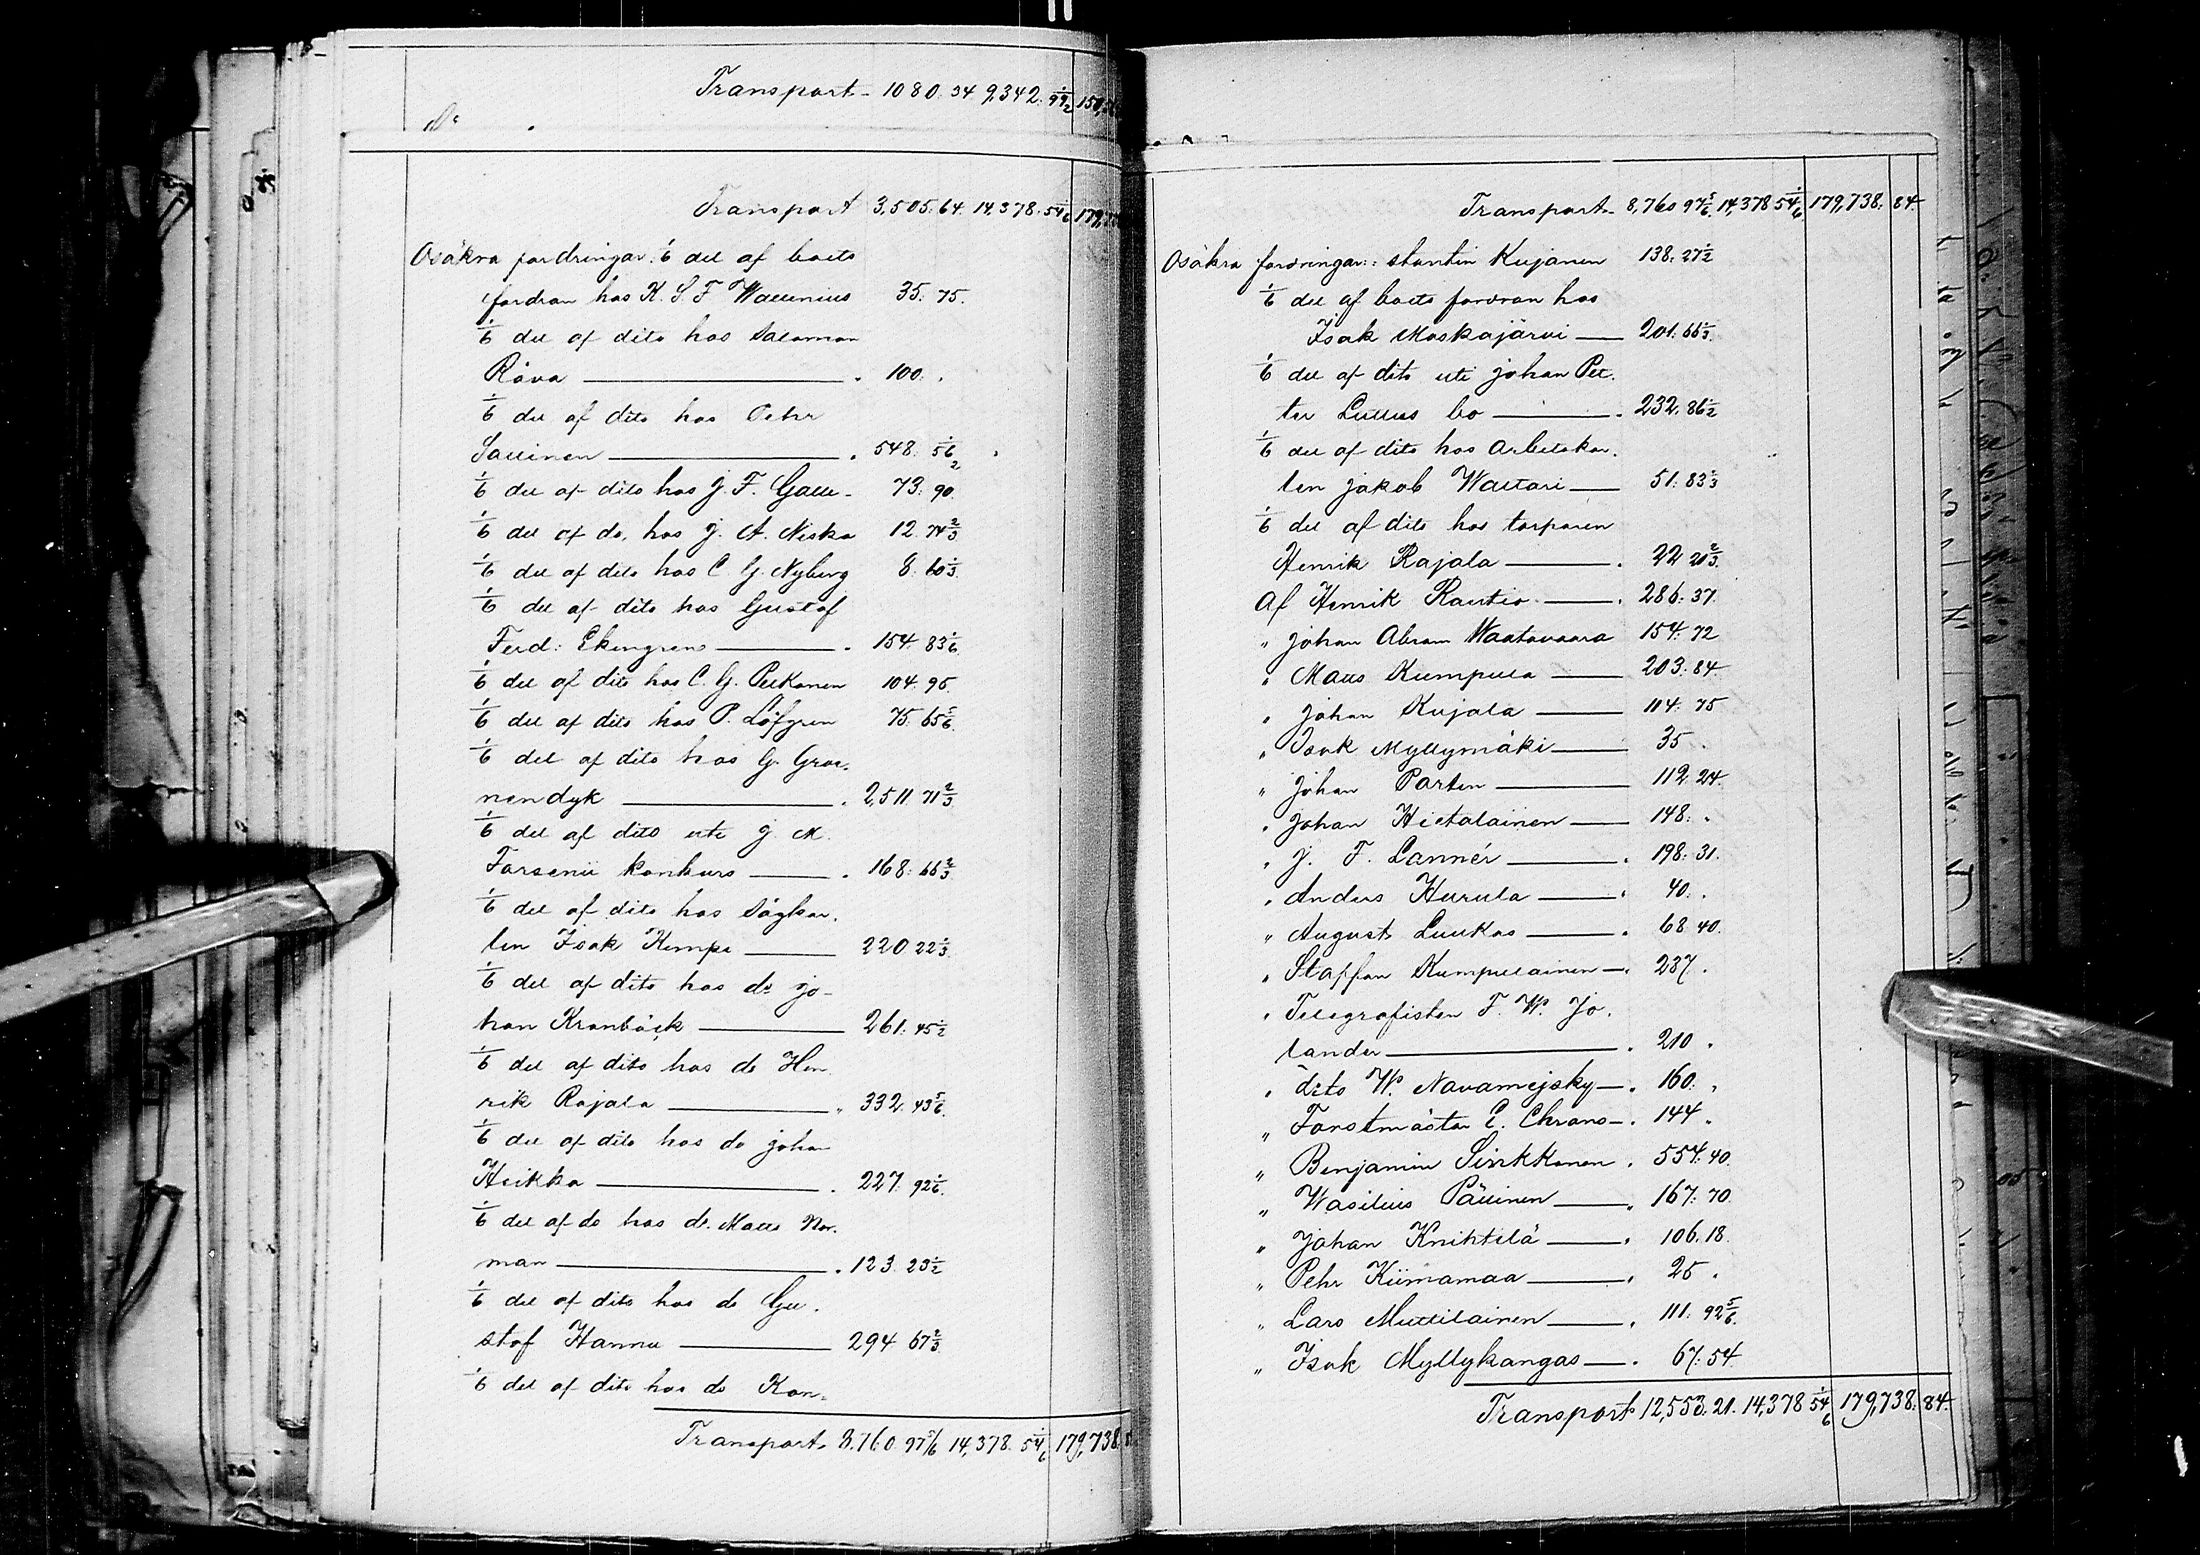 Transport 1080. 34 9,342. 99 1/2
Transport 3,505. 64. 14,378. 54 1/6
Osäkra fordringar: 1/6 del af boets
fordran hos K. S. F Wallenius 35. 75.
1/6 del af dito hos Salomon
Råva 100. .
1/6 del af dito hos Pehr
Sallinen 548. 56 1/2
1/6 del af dito hos J. F. Gall 73. 90.
1/6 del af do. hos J. A. Niska 12. 74 2/3
1/6 del af dito hos C G. Nyberg 8. 60 1/3
1/6 del af dito hos Gustaf
Ferd: Ekengren 154. 83 1/6
1/6 del af dito hos C. G. Pelkonen 104. 95.
1/6 del af dito hos P. Löfgren 75. 65 5/6
1/6 del af dito hos G. Groe-
nendyk 2,511. 71 2/3
1/6 del af dito uti J M.
Forsenii konkurs 168. 66 2/3
1/6 del af dito hos Sågkar-
len Isak Kempe 220 22 1/3
1/6 del af dito hos do Jo-
han Kronbäck 261. 45 1/2
1/6 del af dito hos do Hen-
rik Rajala 332. 43 5/6
1/6 del af dito hos do Johan
Heikka 227. 92 1/6
1/6 del af do hos do. Matts Nor-
man 123. 23 1/2
1/6 del af dito hos do Gu-
staf Hannu 294 67 2/3
1/6 del af dito hos do Kon-
Transport 8.760. 97 5/6 14,378. 54 1/6 179,738.
Transport 8,760 97 5/6 14,378 54 1/6 179,738. 84.
Osäkra fordringar: stantin Kujanen 138. 27 1/2
1/6 del af boets fordran hos
Isak Moskajärvi 201. 66 2/3
1/6 del af dito uti Johan Pet-
ter Lullus bo 232. 86 1/2
1/6 del af dito hos arbetskar-
len Jakob Waltari 51. 83 1/3
1/6 del af dito hos torparen
Henrik Rajala 22 20 2/3
Af Henrik Rautio 286. 37.
" Johan Abram Waatovaara 154. 72
" Matts Kumpula 203. 84.
" Johan Kujala 114. 75
" Isak Myllymäki 35 .
" Johan Parten 112. 24.
" Johan Hietalainen 148. .
" J. F. Lannér 198. 31.
" Anders Hurula 40. .
" August Luukas 68. 40.
" Staffan Kumpulainen 237. .
" Telegrafisten F. W. Jo-
lander 210 .
" dito W. Navamejsky 160. .
" Forstmästar E. Chrons 144 .
" Benjamin Sirkkonen 554. 40.
" Wasilius Pällinen 167. 70.
" Johan Knihtilä 106. 18.
" Pehr Kiimamaa 25 .
" Lars Muttilainen 111. 92 5/6
" Isak Myllykangas 67. 54.
Transport 12,553. 21. 14,378 54 1/6 179,738. 84.